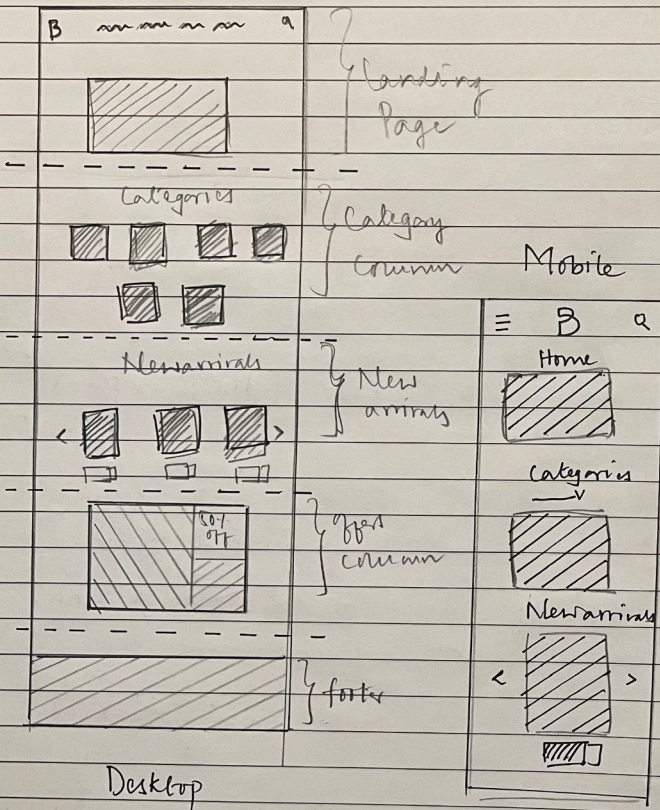 B
Landing
Page
Categories
Category
Column
Newarrivals
New
arrivals
50%
off
offers
column
footer
Desktop
Mobile
B
Home
Categories
Newarrivals